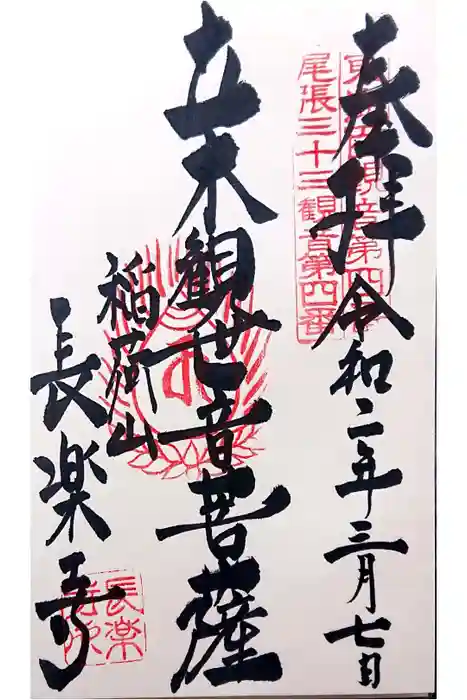 奉拝
令和二年三月七日
尾張三十三観音第四番
観世音菩薩
稲荷山
長楽寺
長楽